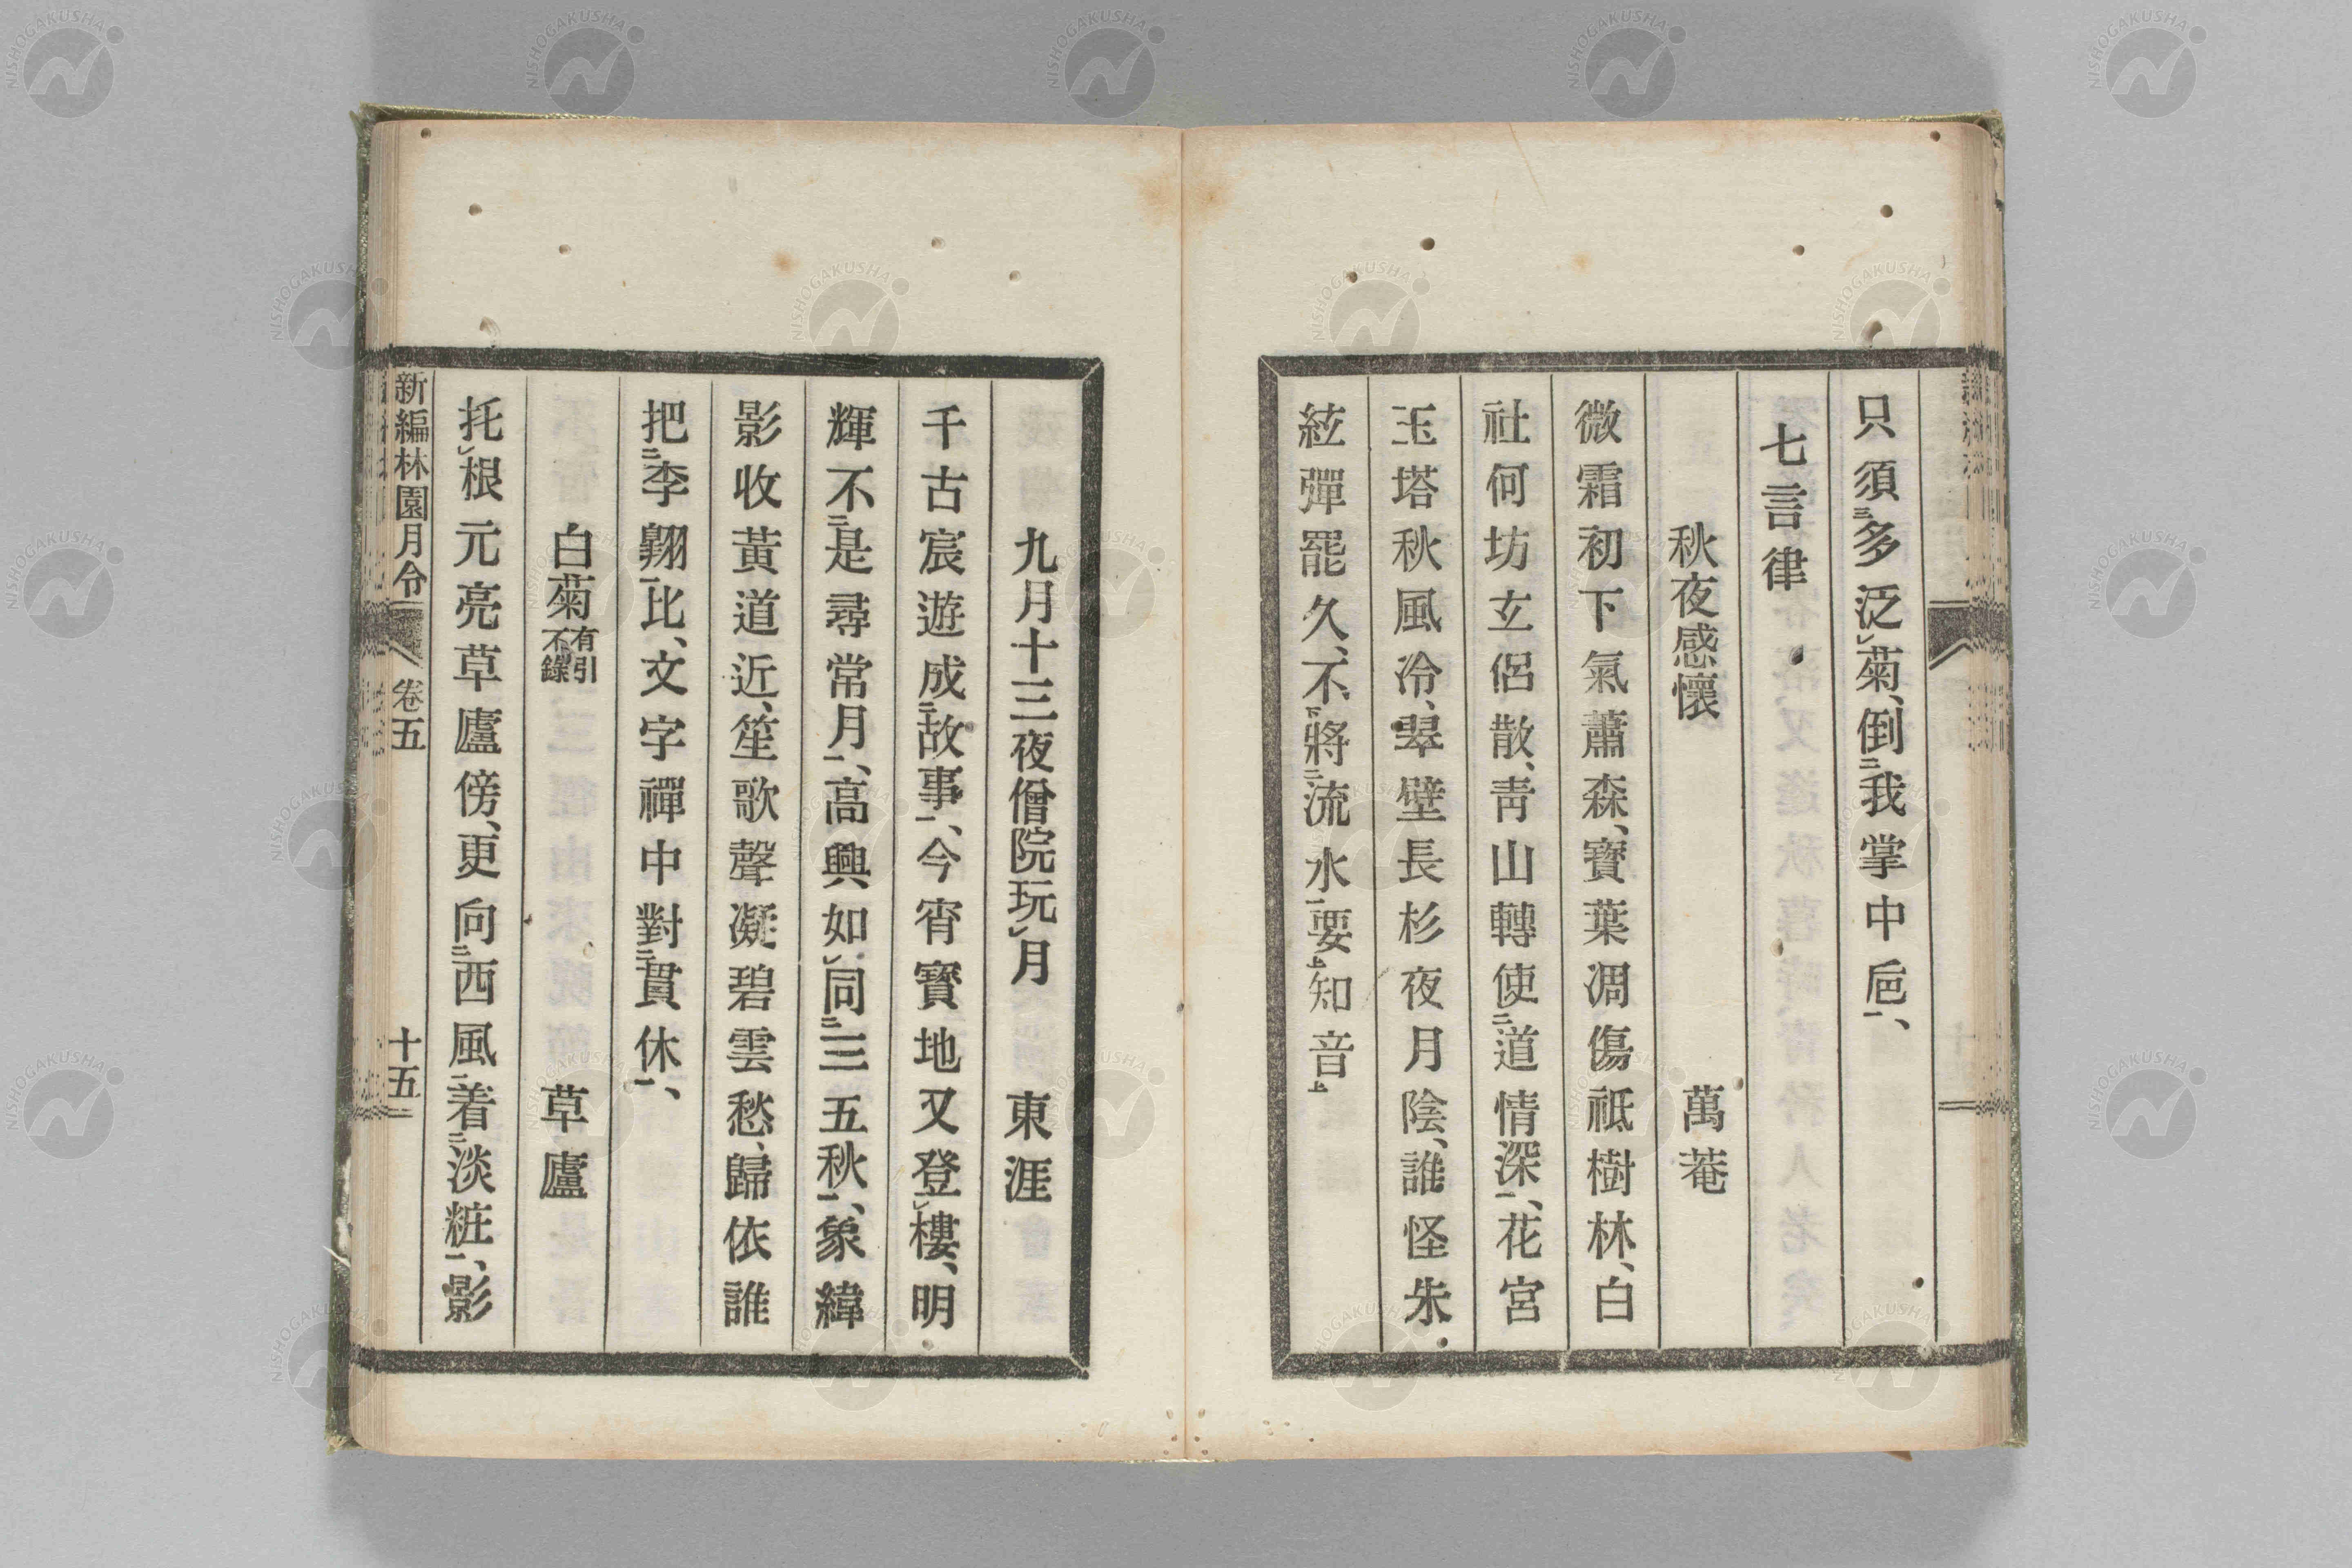 只須三多泛レ菊、倒二我掌中巵一、
七言律
秋夜感懷 萬菴
微霜初下氣蕭森、寶葉凋傷祗樹林、白
社何坊玄侶散、靑山轉使二道情深一、花宮
玉塔秋風冷、翠壁長杉夜月陰、誰怪朱
絃彈罷久、不下將二流水一要上知音上
九月十三夜僧院玩レ月 東涯
千古宸遊成二故事一、今宵寶地又登レ樓、明
輝不二是尋常月一、高興如レ同二三五秋一、象緯
影收黃道近、笙歌聲凝碧雲愁、歸依誰
把二李翺一比、文字禪中對二貫休一、
白菊 有引不錄 草廬
托レ根元亮草廬傍、更向二西風一着二淡粧一、影
新編林園月令 卷五 十五
NISHOGAKUSHA